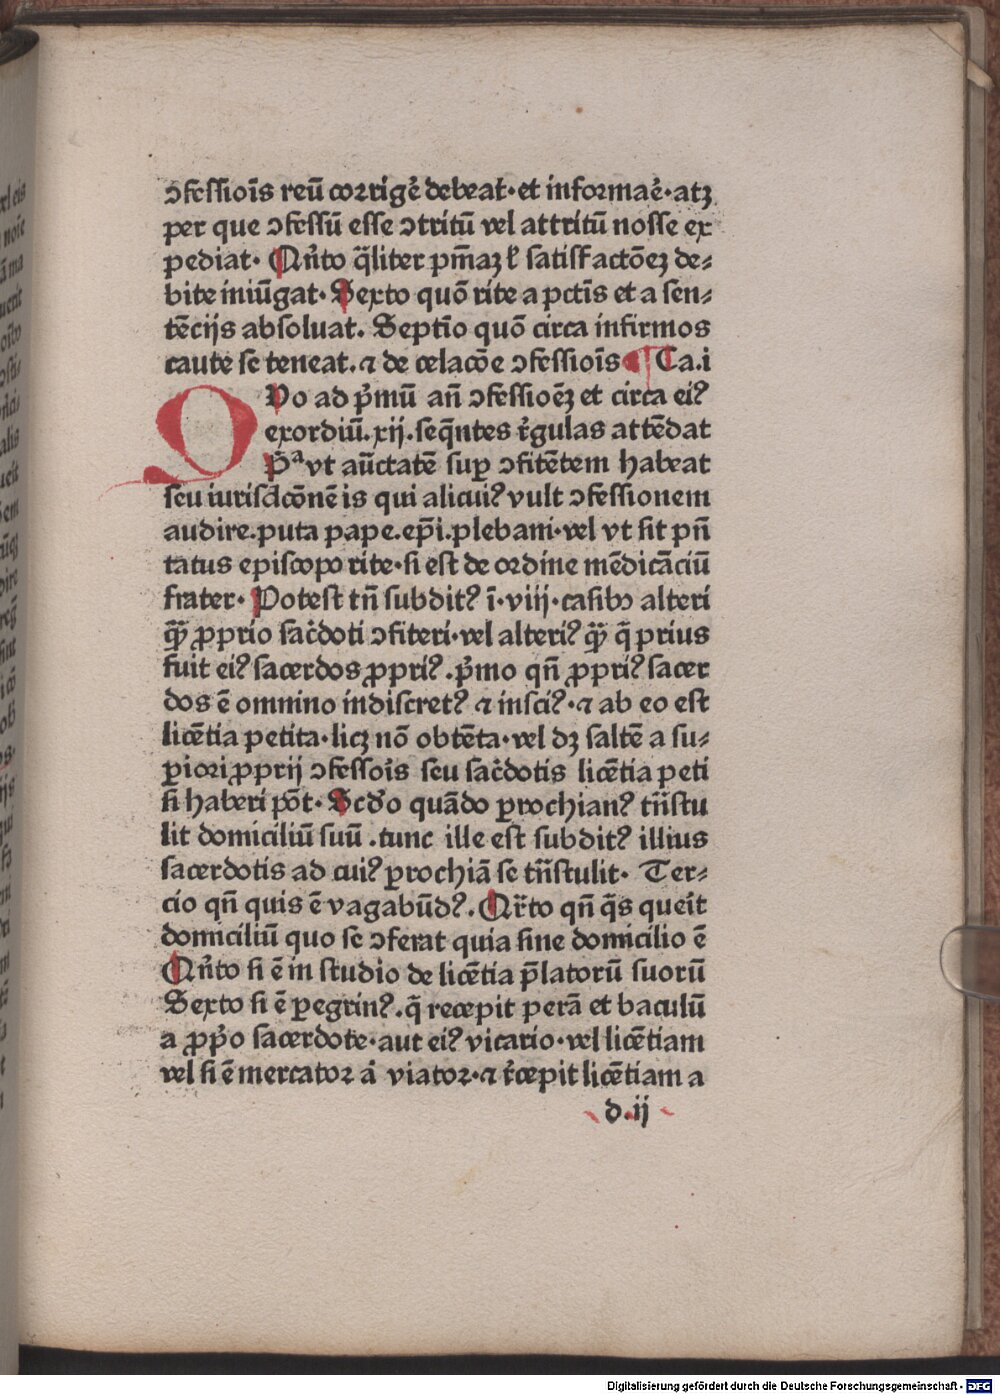 ↄfessioīs reū corrigē debeat·et informaē·atꝫ
per que ↄfessū esse ↄtritū vel attritū nosse ex
pediat· Qn̄to q̄liter pm̄aꝫ ł satisfactōeꝫ de⸗
bite iniūgat· Sexto quō rite a pctīs et a sen⸗
tēcijs absoluat. Septīo quō circa infirmos
caute se teneat.⁊ de celacōe ↄfessioīs ¶ Ca.i
QVo ad p̄mū an̄ ↄfessioēꝫ et circa eiꝰ
exordiū.xij.seq̄ntes r̄gulas attēdat
P̄ᵃ vt aūctatē suꝑ ↄfitētem habeat
seu iurisdcōnē is qui alicuiꝰ vult ↄfessionem
audire.puta pape.ep̄i.plebani·vel vt sit pn̄
tatus episcopo rite·si est de ordine mēdicāciū
frater· Potest tn̄ subditꝰ ī·viij·casibꝫ alteri
qꝫ̄ ꝓprio sac̄doti ↄfiteri·vel alteriꝰ qꝫ̄ q̄ prius
fuit eiꝰ sacerdos ꝓpriꝰ.p̄mo qn̄ ꝓpriꝰ sacer
dos ē omnino indiscretꝰ ⁊ insciꝰ·⁊ ab eo est
licētia petita·licꝫ nō obtēta·vel dꝫ saltē a su⸗
ꝑiori ꝓprij ↄfessoīs seu sac̄dotis licētia peti
si haberi pōt· Scd̄o quādo ꝑrochianꝰ tn̄stu
lit domiciliū suū .tunc ille est subditꝰ illius
sacerdotis ad cuiꝰ ꝑrochiā se tn̄stulit· Ter⸗
cio qn̄ quis ē vagabūdꝰ. Qr̄to qn̄ q̄s queīt
domiciliū quo se ↄferat quia sine domicilio ē
Qn̄to si ē in studio de licētia p̄latorū suorū
Sexto si ē ꝑegrinꝰ.q̄ recepit perā et baculū
a ꝓp̄o sacerdote·aut eiꝰ vicario·vel licētiam
vel si ē mercator a̍ viator·⁊ r̄cepit licētiam a
d.ij
Digitalisierung gefördert durch die Deutsche Forschungsgemeinschaft - DFG